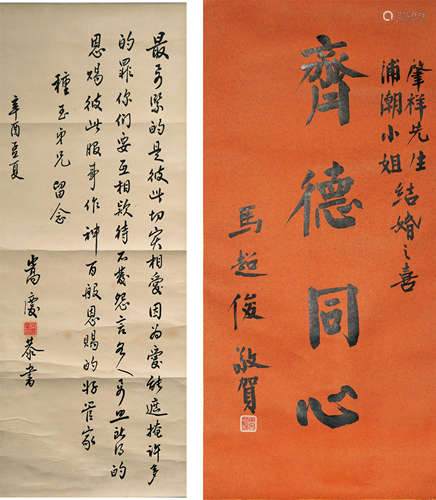 最要緊的是彼此切實相愛因為愛能遮掩許多
的罪你們要互相款待不發怨言各人要照所得的
恩賜彼此服事作神百般恩賜的好管家
種玉弟兄 留念
辛酉夏
嵩慶 恭書
肇祥先生
浦潮小姐結婚之喜
齊德同心
馬超俊 敬賀